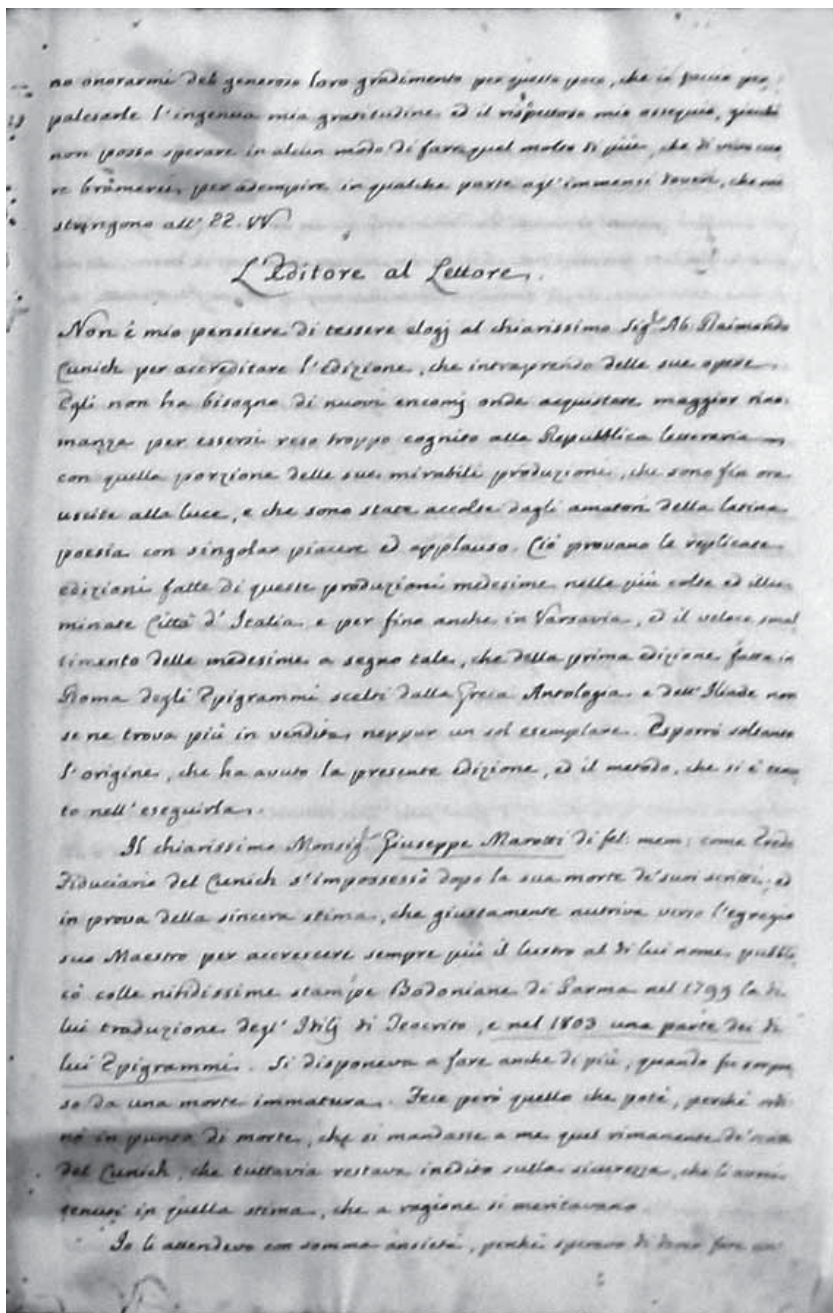 no onorarmi del generoso loro gradimento per questo poco, che io faccio per
palesarle l'ingenua mia gratitudine, ed il rispettoso mio ossequio, giacchè
non posso sperare in alcun modo di fare quel molto di più, che di vivo cuo
re bramerei, per adempire in qualche parte agl'immensi doveri, che mi
stringono all' EE. VV.
L'Editore al Lettore.
Non è mio pensiere di tessere elogj al chiarissimo Sig.r Ab. Raimondo
Cunich per accreditare l'edizione, che intraprendo delle sue opere.
Egli non ha bisogno di nuovi encomj onde acquistare maggior rino
manza per essersi reso troppo cognito alla Repubblica letteraria
con quella porzione delle sue mirabili produzione, che sono fin ora
uscite alla luce, e che sono state accolte dagli amatori della latina
poesia con singolar piacere ed applauso. Ciò provano le replicate
edizioni fatte di queste produzioni medesime nelle più colte ed illu
minate Città d'Italia e per fino anche in Varsavia, ed il veloce smal
timento delle medesime a segno tale, che della prima edizione fatta in
Roma degli Epigrammi scelti dalla Greca Antologia e dell'Iliade non
se ne trova più in vendita neppur un sol esemplare. Esporrò soltanto
l'origine, che ha avuto la presente edizione, ed il metodo, che si è tenu
to nell'eseguirla.
Il chiarissimo Monsig.r Giuseppe Marotti di fel: mem: come Erede
Fiduciario del Cunich s'impossessò dopo la sua morte de' suoi scritti, ed
in prova della sincera stima, che giustamente nutriva verso l'egregio
suo Maestro per accrescere sempre più il lustro al di lui nome pubbli
cò colle nitidissime stampe Bodoniane di Parma nel 1799 la di
lui traduzione degl' Idilj di Teocrito, e nel 1803 una parte dei di
lui Epigrammi. Si disponeva a fare anche di più, quando fu sorpre
so da una morte immatura. Fece però quello che potè, perchè ordi
nò in punto di morte, che si mandasse a me quel rimanente de'
del Cunich, che tuttavia restava inedito sulla sicurezza, che li avrei
tenuti in quella stima, che a ragione si meritavano.
Io li attendevo con somma ansietà, perchè speravo di fare un